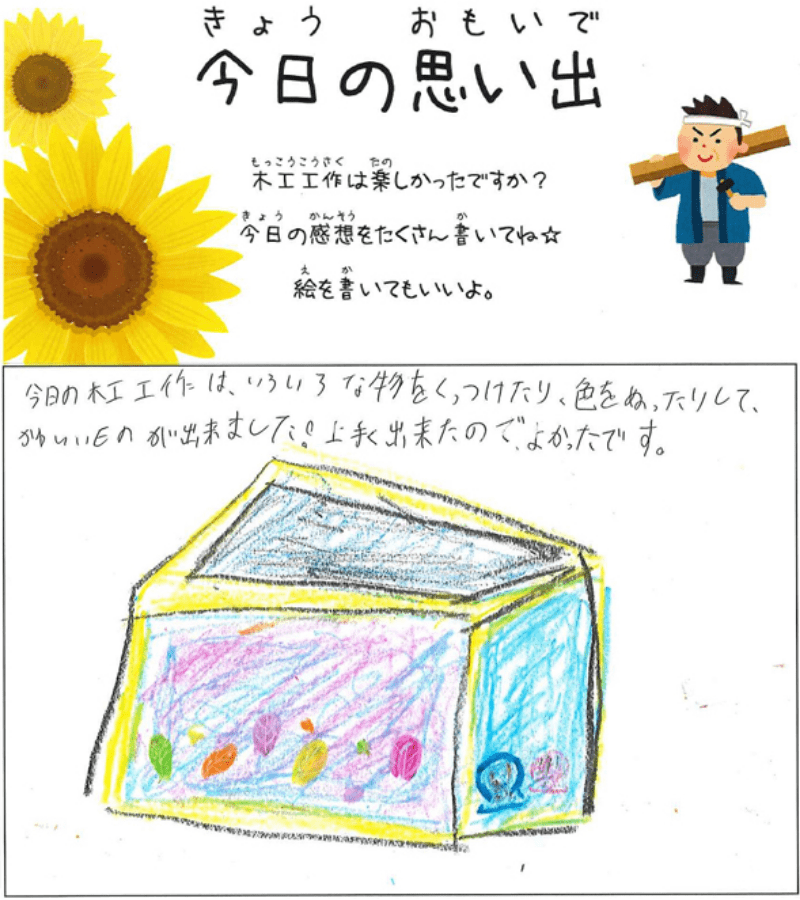 きょう おもいで
今日の思い出
もっこうこうさく たの
木工工作は楽しかったですか？
きょう かんそう か
今日の感想をたくさん書いてね☆
え か
絵を書いてもいいよ。
今日の木工工作は、いろいろな物をくっつけたり、色をぬったりして、
かわいいものが出来ました！上手く出来たので、よかったです。